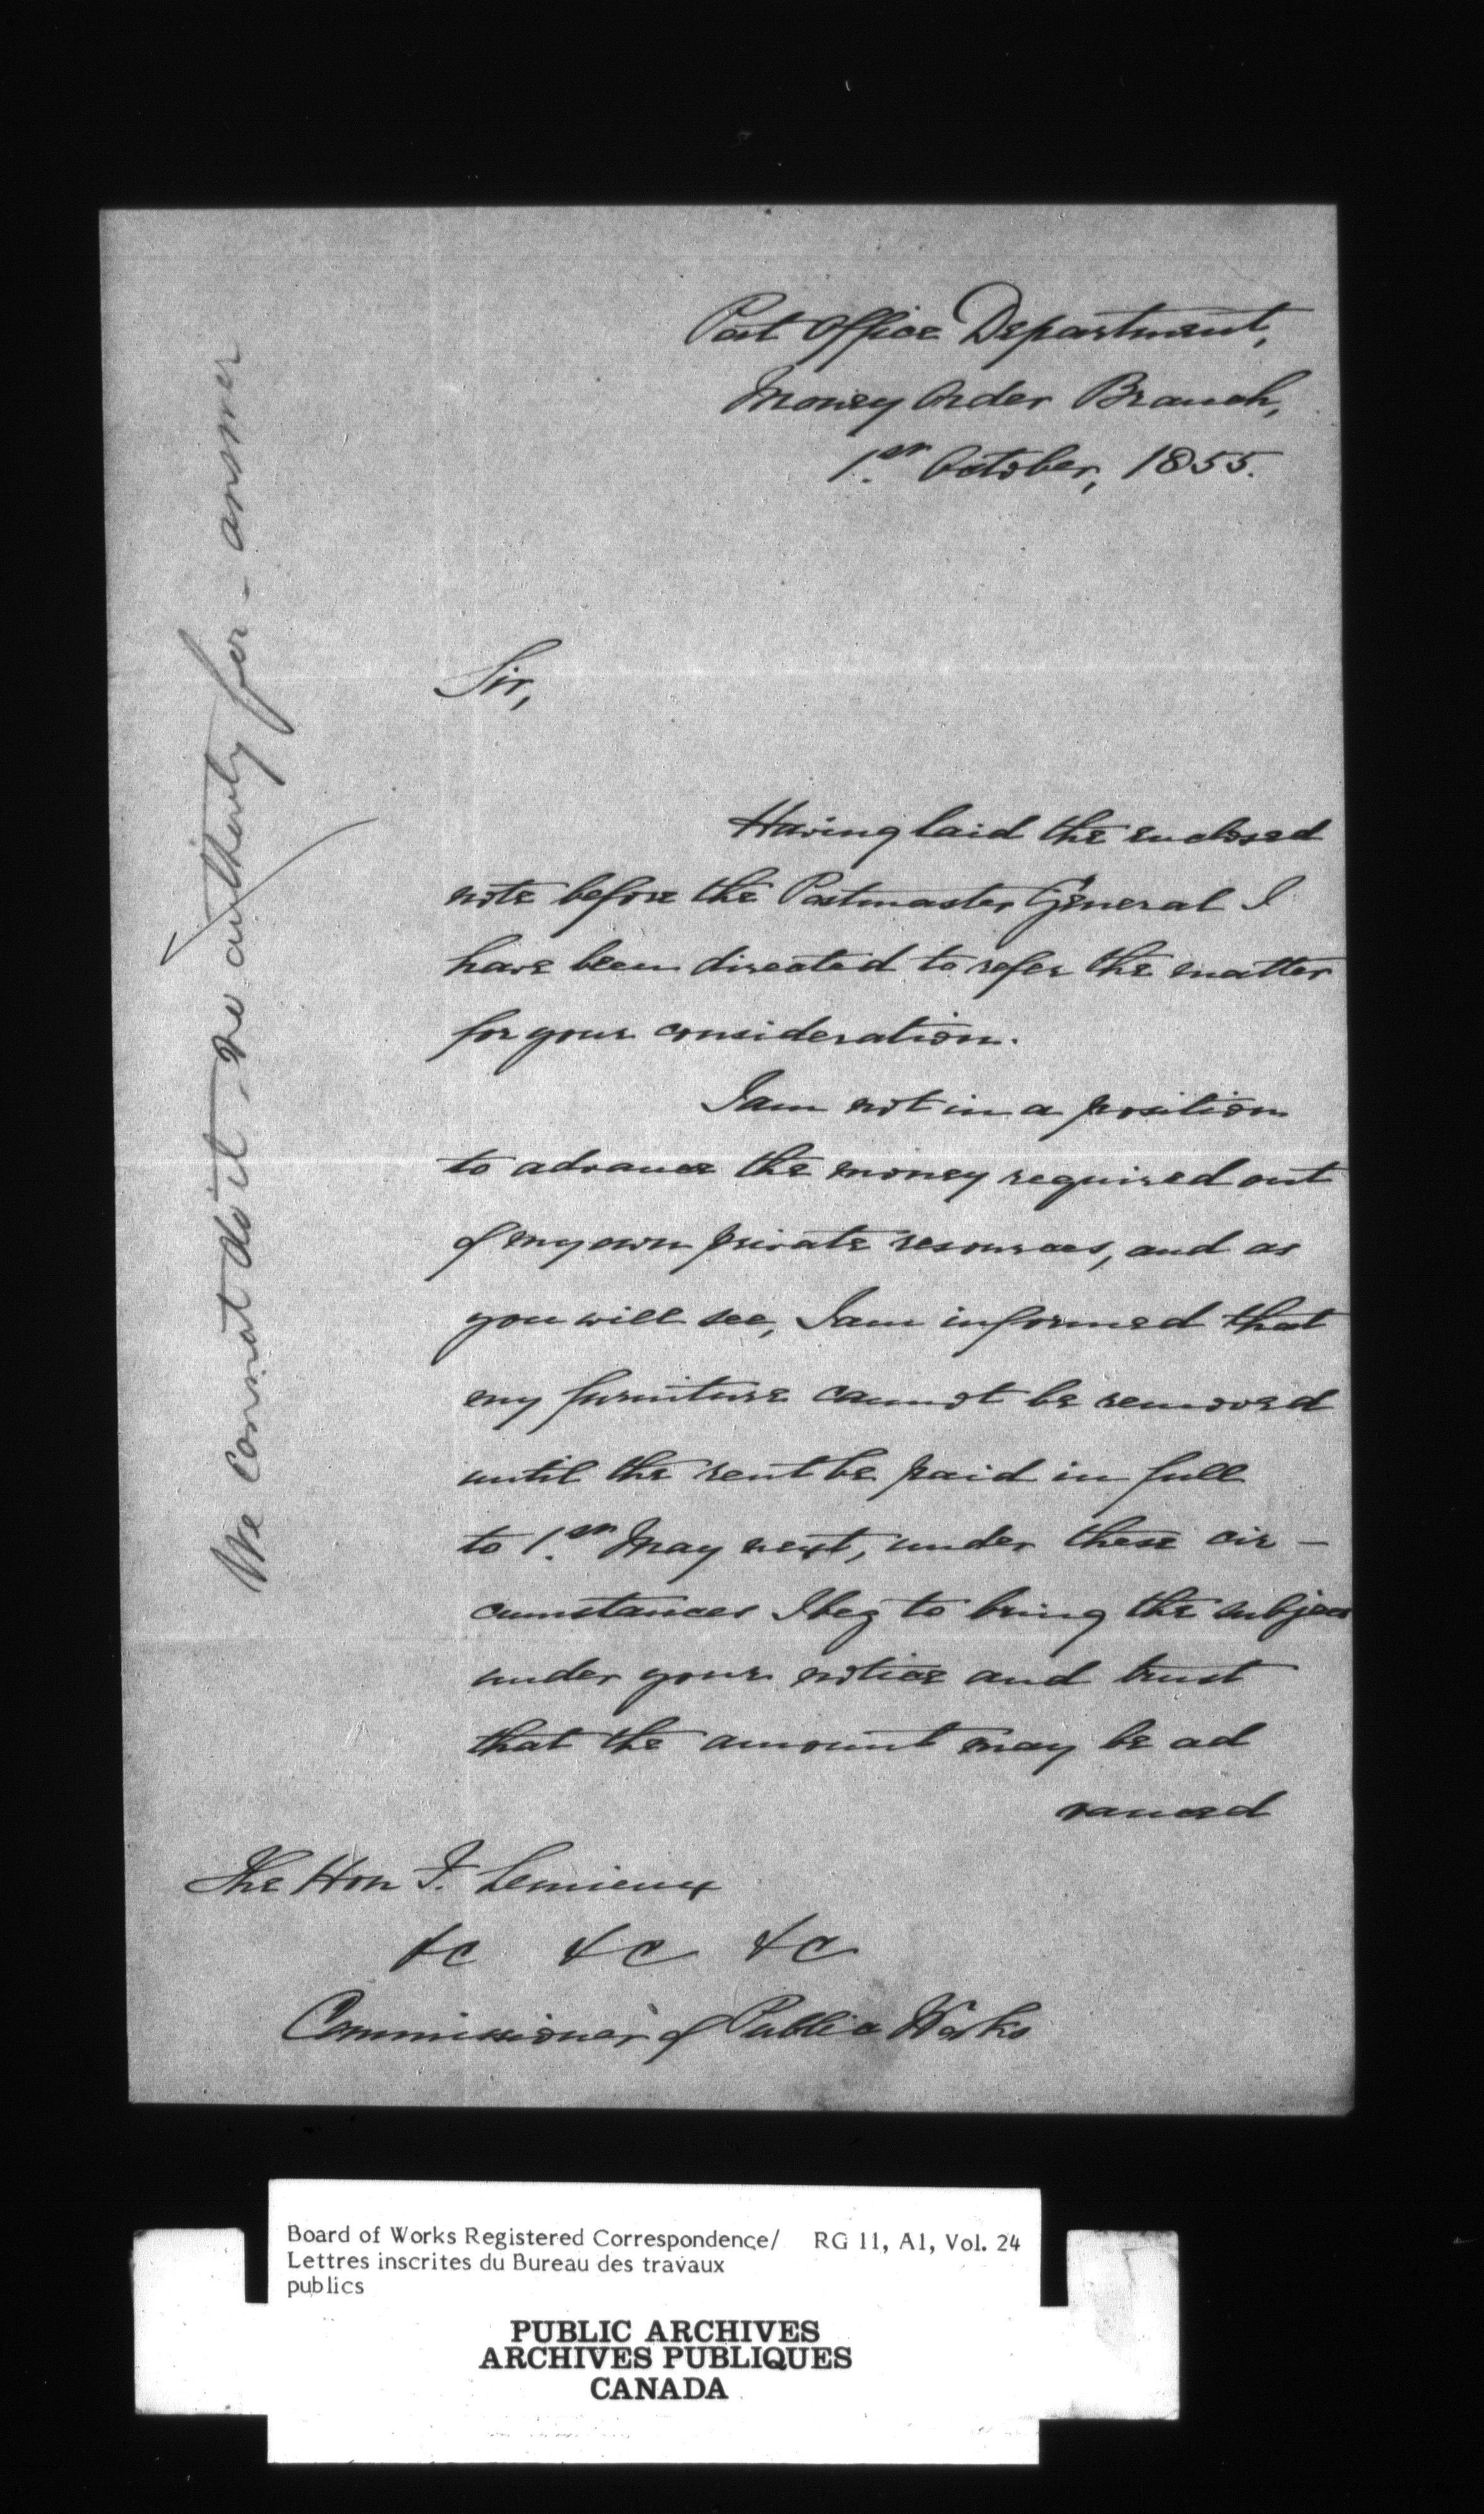 Post Office Department,
Money Order Branch,
1st October, 1855.
Sir,
Having laid the enclosed
note before the Postmaster General I
have been directed to refer the matter
for your consideration.
I am not in a position
to advance the money required out
of my own private resources, and as
you will see, I am informed that
my furniture cannot be removed
until the rent be paid in full
to 1st May next, under these cir-
cumstances I beg to bring the subject
under your notice and trust
that the amount may be ad
vanced
The Hon F. Lemieux
&c &c &c
Commissioner of Public Works
We cannot do it, no authority for - answer
Board of Works Registered Correspondence/ RG 11, A1, Vol. 24
Lettres inscrites du Bureau des travaux
publics
PUBLIC ARCHIVES
ARCHIVES PUBLIQUES
CANADA